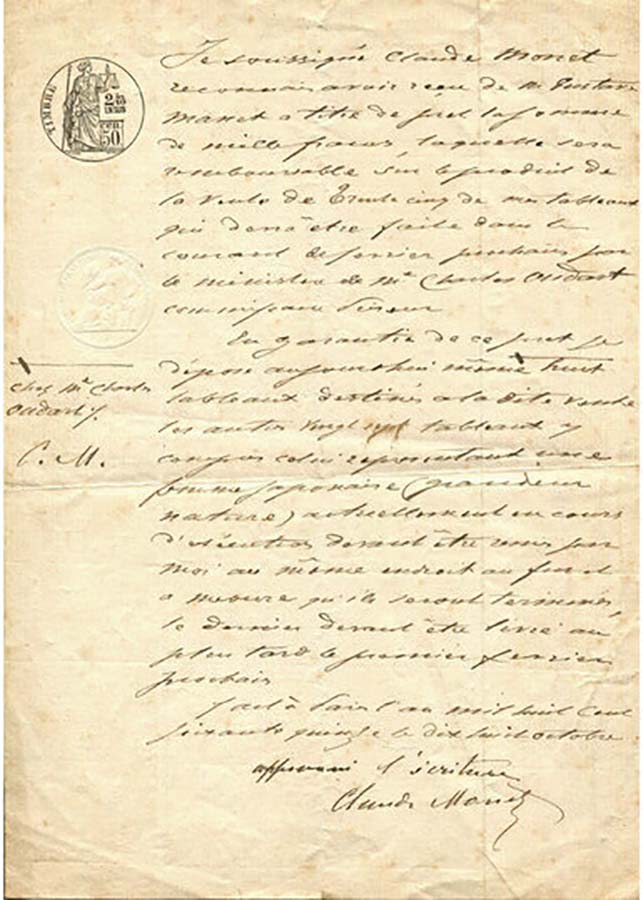 TIMBRE
50
Je soussigné Claude Monet
reconnais avoir reçu de Mr Gustave
Manet a titre de prêt la somme
de mille francs, laquelle sera
remboursable sur le produit de
la vente de Trente cinq de mes tableaux
qui devra être faite dans le
courant de fevrier prochain par
le ministère de Me Charles Oudart
commissaire Priseur
En garantie de ce pret je
dépose aujourdhui même huit
tableaux destinés a la dite vente
les autres vingt sept tableaux y
compris celui représentant une
femme japonaise (grandeur
nature) actuellement en cours
d'exécution devant être remis par
moi au même endroit au fur et
a mesure qu'ils seront terminés,
le dernier devant être livré au
plus tard le premier fevrier
prochain
Fait à Paris l'an mil huit cent
soixante quinze le dix huit octobre
approuvé l'écriture
Claude Monet
chez Me Charles
Oudart
C. M.